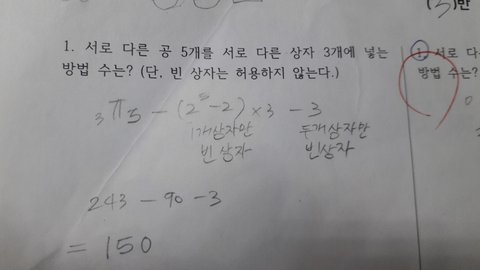 (3)만
1. 서로 다른 공 5개를 서로 다른 상자 3개에 넣는
방법 수는? (단, 빈 상자는 허용하지 않는다.)
₃π₅ - (2⁵-2)×3 - 3
1개상자만 두개상자만
빈상자 빈상자
243 - 90 - 3
= 150
1. 서로 다
방법 수는?